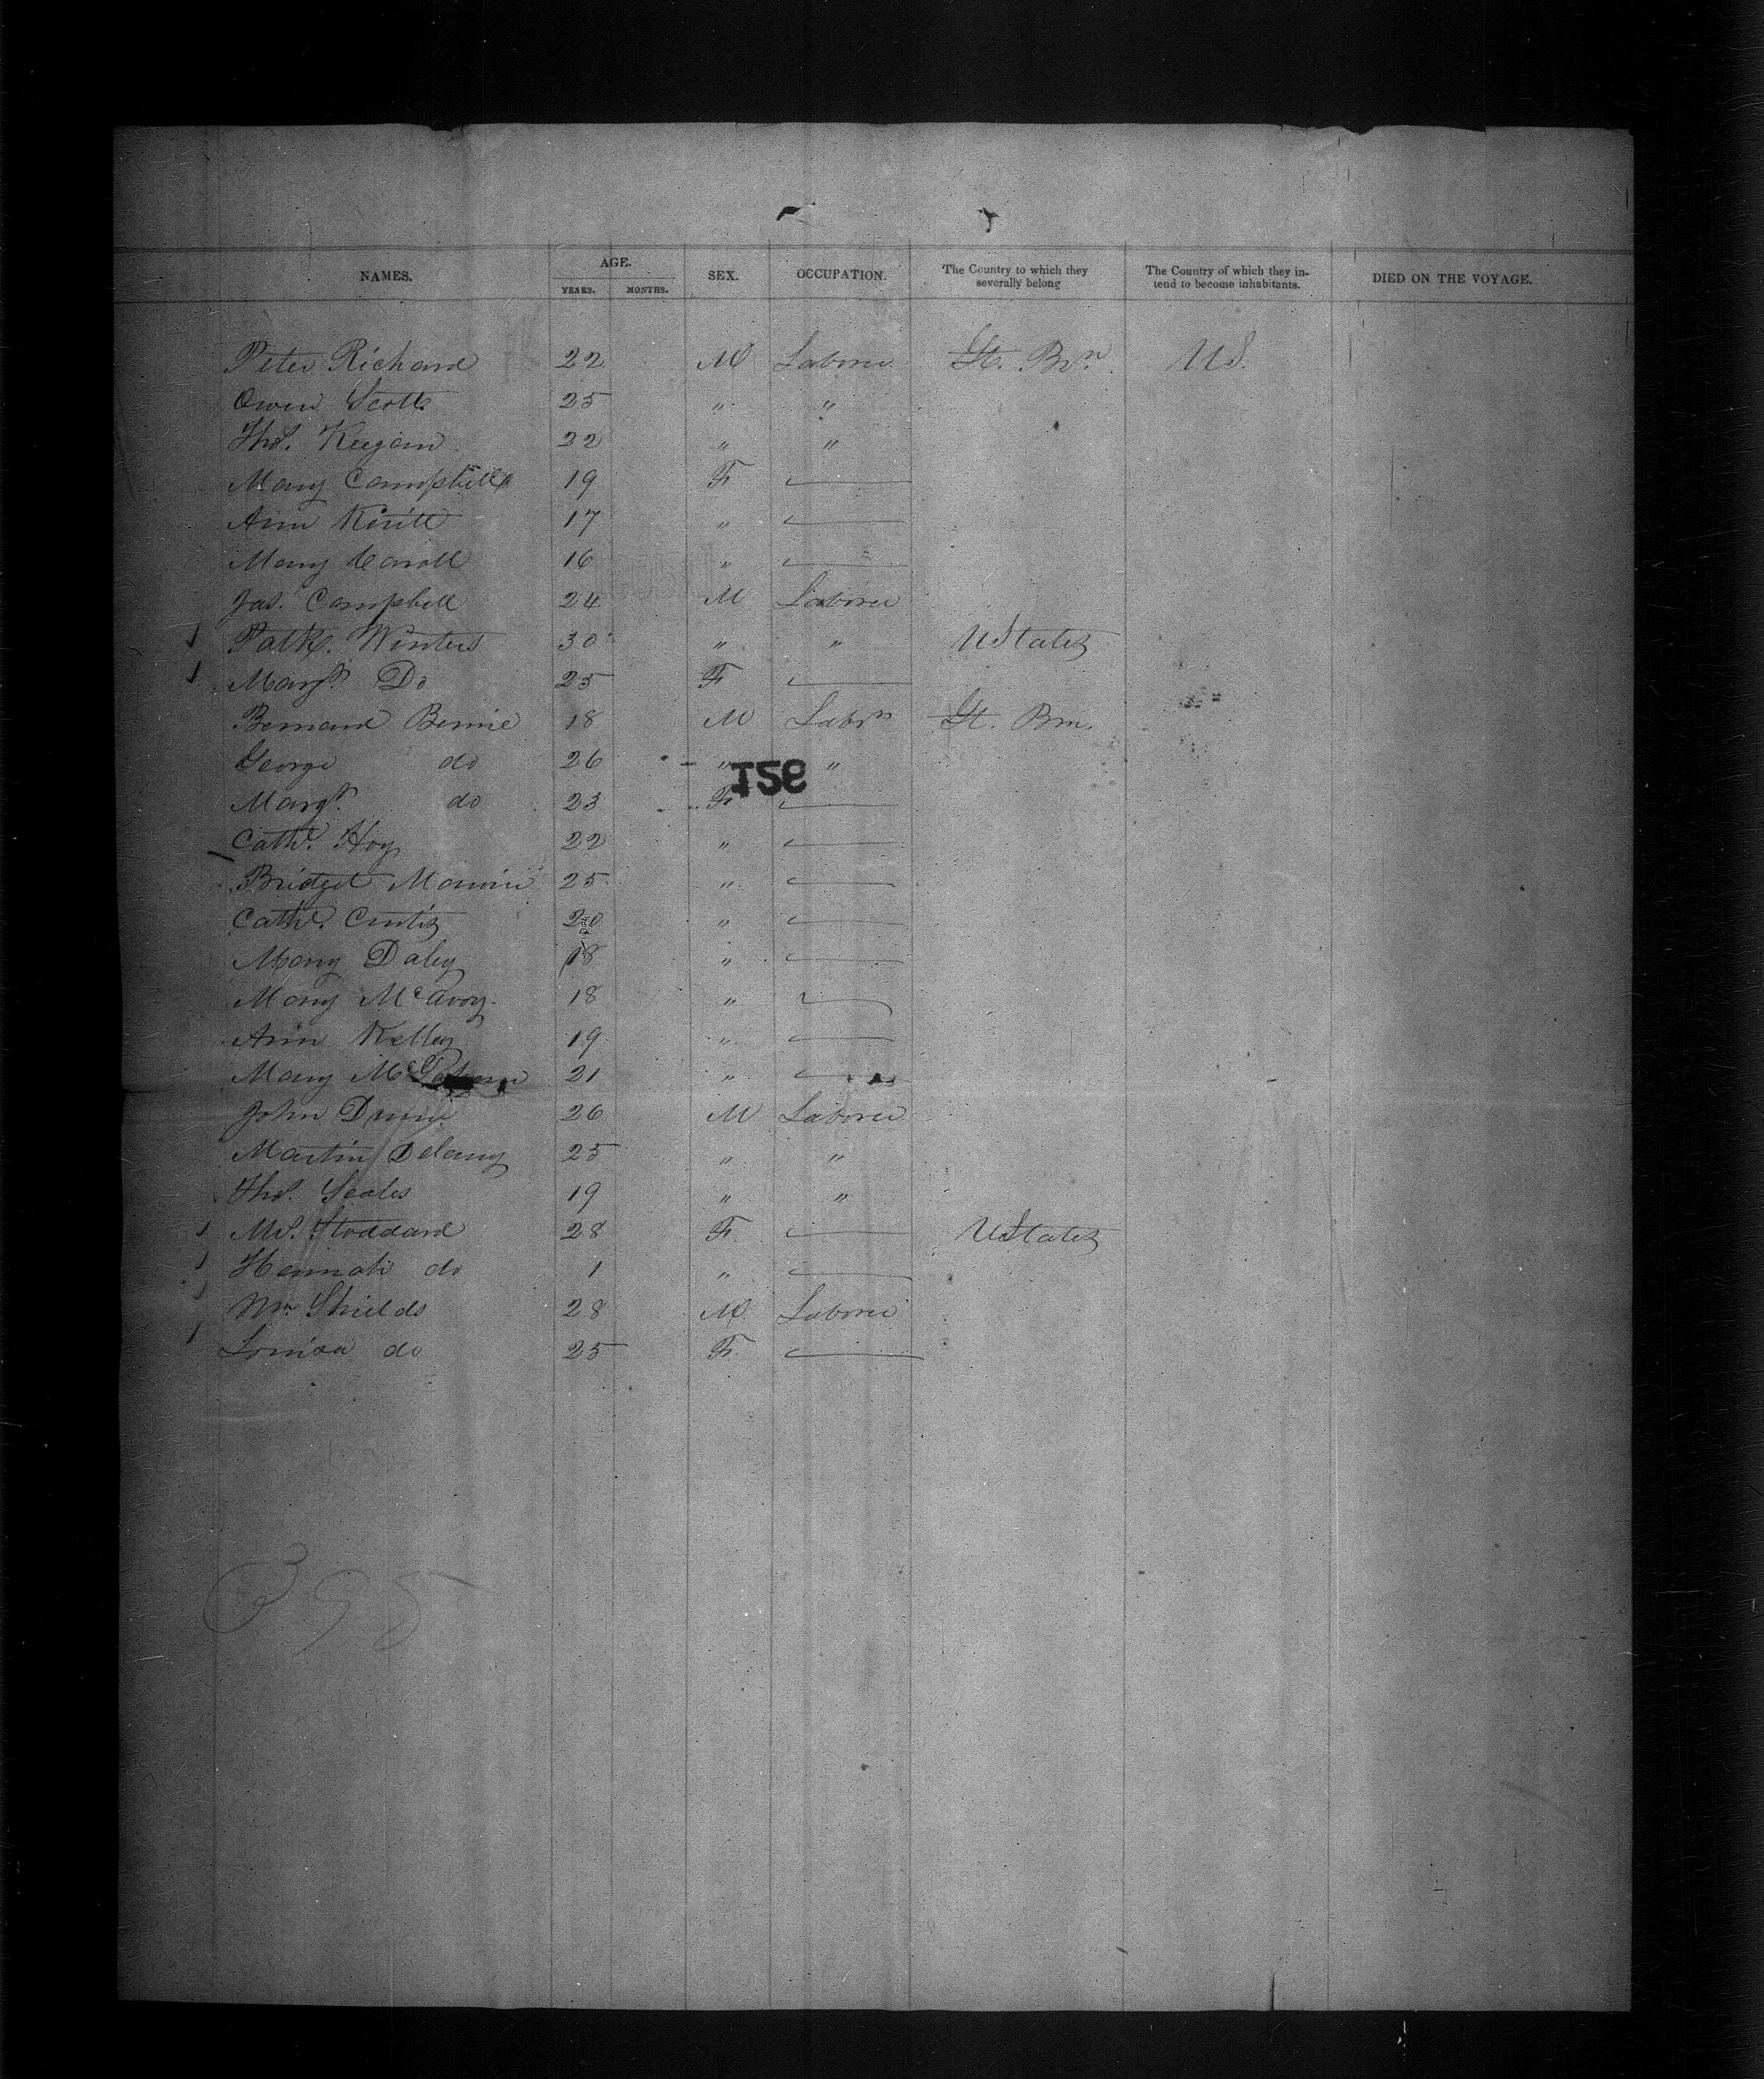 NAMES. AGE. SEX. OCCUPATION. The Country to which they severally belong The Country of which they in-tend to become inhabitants. DIED ON THE VOYAGE.
YEARS. MONTHS.
Peter Richard 22 M Laborer Gt. Brn. US.
Owen Scott 25 " "
Thos. Keegan 22 " "
Mary Campbell 19 F —
Ann 17 " —
Mary Caroll 16 " —
Jas. Campbell 24 M Laborer
Patk. Winters 30 " " UStates
Margt. Do 25 F —
Bernard 18 M Labr Gt. Brn.
George do 26 " "
Margt. do 23 F —
Cathe. Hoy 22 " —
Bridget 25 " —
Cathe. Curtis 20 " —
Mary Daley 18 " —
Mary McAvoy 18 " —
Ann Kelley 19 " —
Mary 21 " —
John Dunn 26 M Laborer
Martin Delany 25 " "
Thos. Scales 19 " "
Ms. Stoddard 28 F — UStates
Hannah do 1 " —
Wm Shields 28 M Laborer
Louisa do 25 F —
395